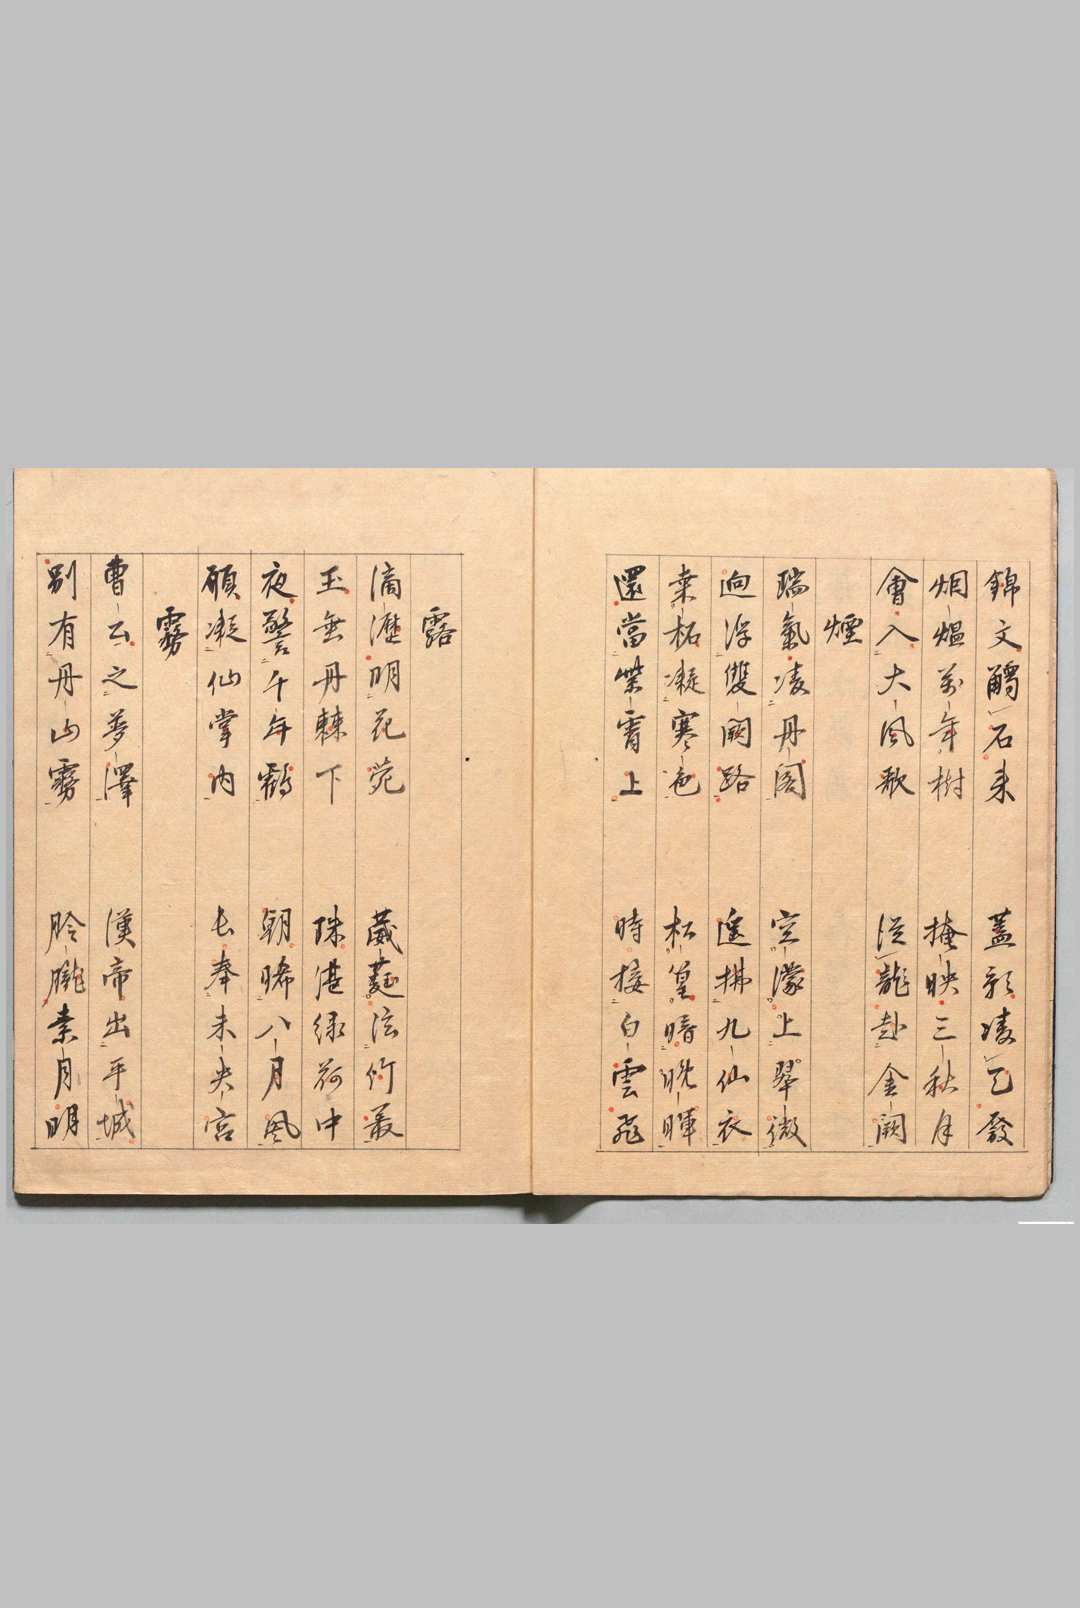 錦文觸石来 蓋影凌天發
烟熅萬年樹 掩映三秋月
會入大風歌 従龍赴金闕
煙
瑞氣凌丹閣 空濛上翠微
迥浮雙闕路 遥拂九仙衣
桒柘凝寒色 松篁暗晩暉
還當紫霄上 時接白雲飛
露
滴瀝明花苑 葳蕤泫竹叢
玉垂丹棘下 珠湛緑荷中
夜警千年鶴 朝晞八月風
願凝仙掌内 長奉未央宮
霧
曹公之夢澤 漢帝出平城
別有丹山霧 朎朧素月明